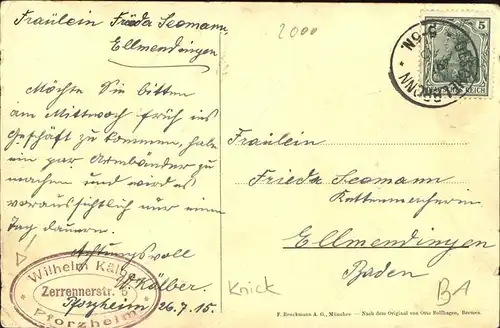 Fräulein Frieda Seemann,
Ellmendingen
Möchte Sie bitten
am Mittwoch früh ins
Geschäft zu kommen, habe
ein par Armbänder zu
machen und wird es
voraussichtlich nur einen
Tag dauern.
Achtungsvoll
W. Kälber.
Pforzheim 26.7.15.
Wilhelm Käl
Zerrennerstr. 6
Pforzheim
2000
5
DEUTSCHES REICH
Fräulein
Frieda Seemann
Kettenmacherin
Ellmendingen
Baden
Knick
BA
F. Bruckmann A. G., München — Nach dem Original von Otto Bollhagen, Bremen.